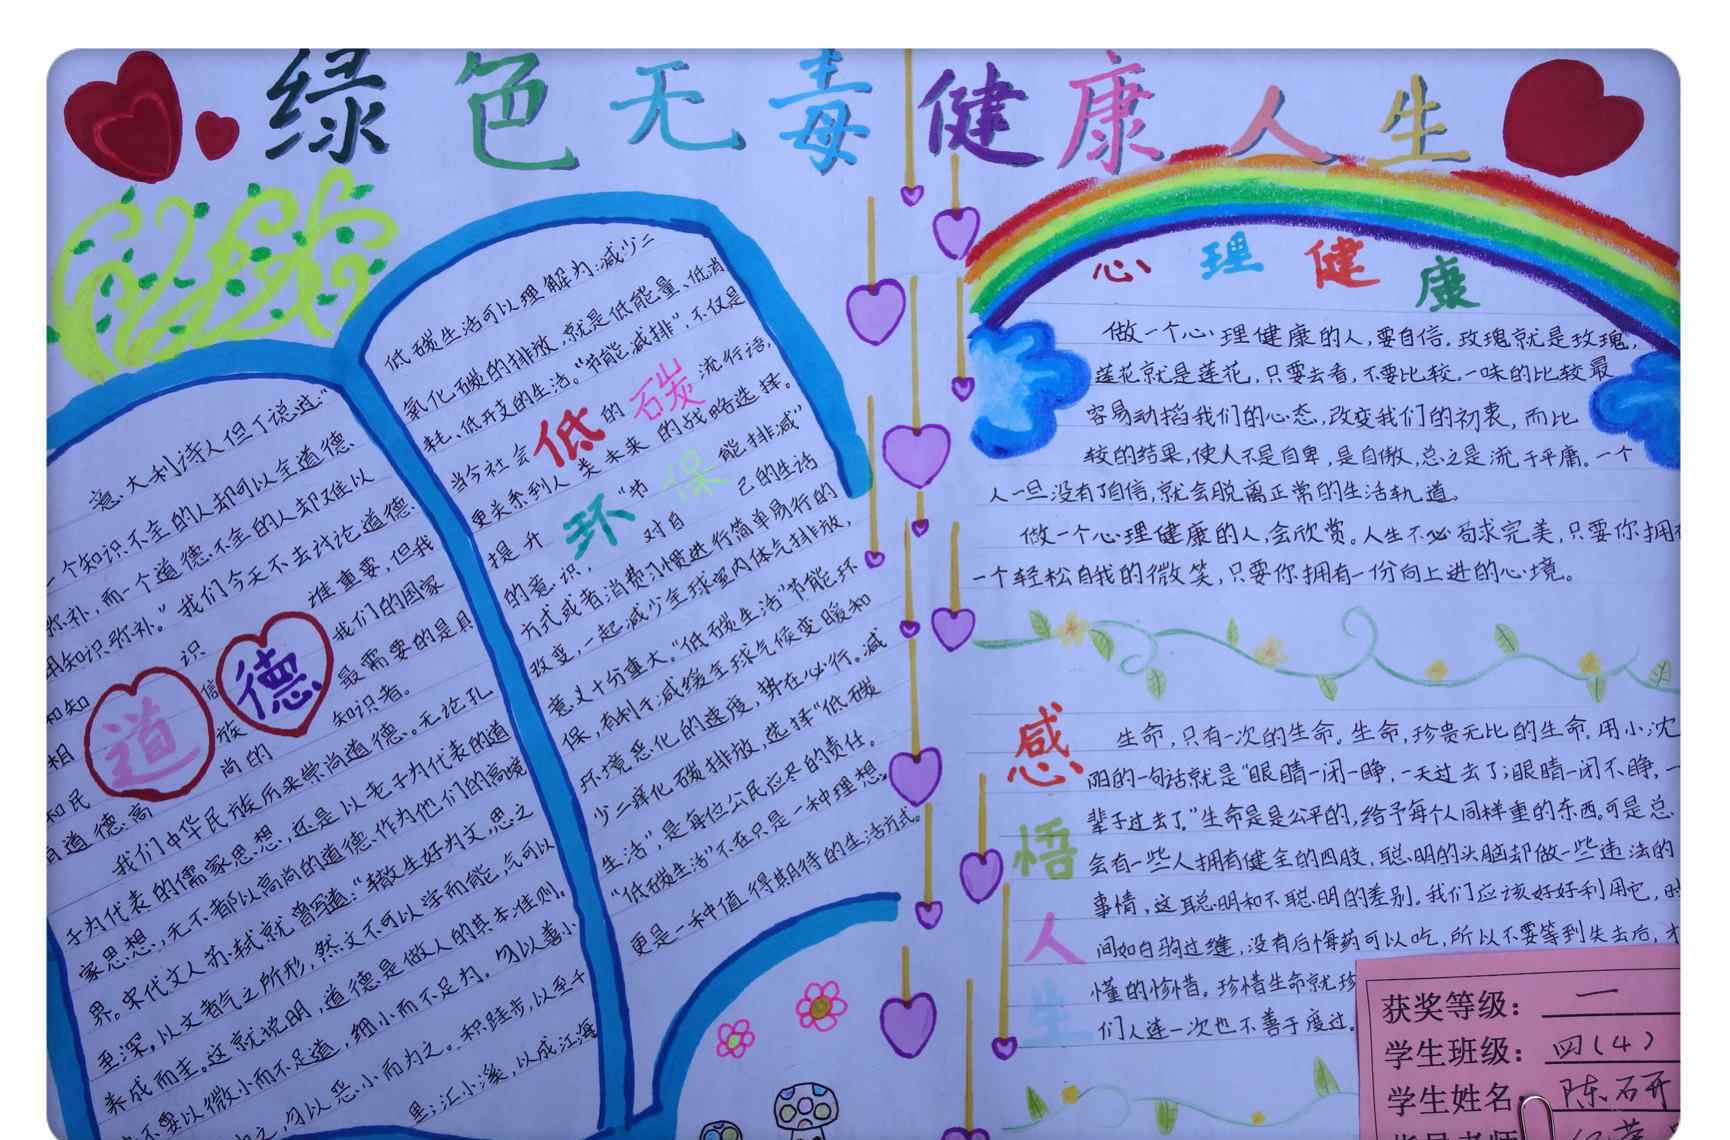 绿色无毒健康人生
意大利诗人但丁说过:"
一个知识不全的人却可以全道德、
弥补,而一个道德不全的人却难以
用知识弥补。"我们今天不去讨论道德、
和知 识 谁重要,但我
相 信 我们的国家
和民 族 最需要的是具
有道德高 尚的 知识者。
道德
我们中华民族历来崇尚道德。无论孔
子为代表的儒家思想,还是以老子为代表的道
家思想,无不都以高尚的道德作为他们的高境
界。宋代文人苏轼就曾写道:"辙生好为文思之
至深,以文者气之所形,然文不可以学而能,气可以
养成而至。这就说明,道德是做人的基本准则。
不要以微小而不足道,细小而不足为。勿以善小
之,勿以恶小而为之。积跬步,以至千
里;汇小溪,以成江海
低碳生活可以理解为:减少二
氧化碳的排放,就是低能量、低消
耗、低开支的生活。"节能减排",不仅是
当今社会 的 流行语,
更关系到人类未来的战略选择。
提升 "节 能排减"
的意识, 对自 己的生活
低碳
环保
方式或者消费习惯进行简单易行的
改变,一起减少全球室内体气排放,
意义十分重大。"低碳生活"节能环
保,有利于减缓全球气候变暖和
环境恶化的速度,势在必行。减
少二痒化碳排放,选择"低碳
生活",是每位公民应尽的责任。
"低碳生活"不在只是一种理想,
更是一种值得期待的生活方式。
心理健康
做一个心理健康的人,要自信。玫瑰就是玫瑰,
莲花就是莲花,只要去看,不要比较。一味的比较最
容易动掐我们的心态,改变我们的初衷,而比
较的结果,使人不是自卑,是自傲,总之是流于平庸。一个
人一旦没有了自信,就会脱离正常的生活轨道。
做一个心理健康的人,会欣赏。人生不必苟求完美,只要你拥有
一个轻松自我的微笑,只要你拥有一份向上进的心境。
感悟人生
生命,只有一次的生命。生命,珍贵无比的生命。用小沈
阳的一句话就是"眼睛一闭一睁,一天过去了;眼睛一闭不睁,一
辈子过去了"生命是是公平的,给予每个人同样重的东西。可是总
会有一些人拥有健全的四肢,聪明的头脑却做一些违法的
事情,这聪明和不聪明的差别。我们应该好好利用它,时
间如白驹过缝,没有后悔药可以吃,所以不要等到失去后,才
懂的惨惜。珍惜生命就珍
们人连一次也不善于度过。
获奖等级: 一
学生班级: 四(4)
学生姓名: 陈石开